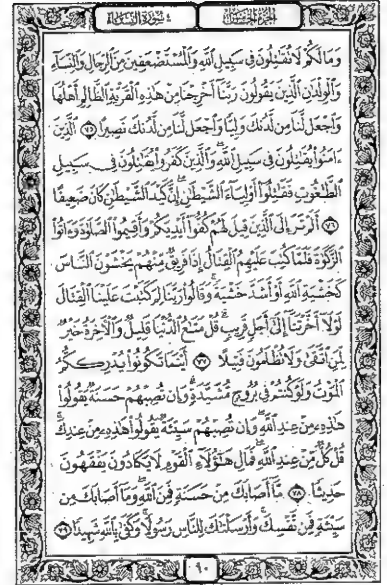 الجزء الخامس سورة النساء
وَمَا لَكُمْ لَا تُقَٰتِلُونَ فِي سَبِيلِ ٱللَّهِ وَٱلْمُسْتَضْعَفِينَ مِنَ ٱلرِّجَالِ وَٱلنِّسَآءِ
وَٱلْوِلْدَٰنِ ٱلَّذِينَ يَقُولُونَ رَبَّنَآ أَخْرِجْنَا مِنْ هَٰذِهِ ٱلْقَرْيَةِ ٱلظَّالِمِ أَهْلُهَا
وَٱجْعَل لَّنَا مِن لَّدُنكَ وَلِيًّا وَٱجْعَل لَّنَا مِن لَّدُنكَ نَصِيرًا ٧٥ ٱلَّذِينَ
ءَامَنُوا۟ يُقَٰتِلُونَ فِي سَبِيلِ ٱللَّهِ وَٱلَّذِينَ كَفَرُوا۟ يُقَٰتِلُونَ فِي سَبِيلِ
ٱلطَّٰغُوتِ فَقَٰتِلُوٓا۟ أَوْلِيَآءَ ٱلشَّيْطَٰنِ إِنَّ كَيْدَ ٱلشَّيْطَٰنِ كَانَ ضَعِيفًا
٧٦ أَلَمْ تَرَ إِلَى ٱلَّذِينَ قِيلَ لَهُمْ كُفُّوٓا۟ أَيْدِيَكُمْ وَأَقِيمُوا۟ ٱلصَّلَوٰةَ وَءَاتُوا۟
ٱلزَّكَوٰةَ فَلَمَّا كُتِبَ عَلَيْهِمُ ٱلْقِتَالُ إِذَا فَرِيقٌ مِّنْهُمْ يَخْشَوْنَ ٱلنَّاسَ
كَخَشْيَةِ ٱللَّهِ أَوْ أَشَدَّ خَشْيَةً وَقَالُوا۟ رَبَّنَا لِمَ كَتَبْتَ عَلَيْنَا ٱلْقِتَالَ
لَوْلَآ أَخَّرْتَنَآ إِلَىٰٓ أَجَلٍ قَرِيبٍ قُلْ مَتَٰعُ ٱلدُّنْيَا قَلِيلٌ وَٱلْءَاخِرَةُ خَيْرٌ
لِّمَنِ ٱتَّقَىٰ وَلَا تُظْلَمُونَ فَتِيلًا ٧٧ أَيْنَمَا تَكُونُوا۟ يُدْرِككُّمُ
ٱلْمَوْتُ وَلَوْ كُنتُمْ فِي بُرُوجٍ مُّشَيَّدَةٍ وَإِن تُصِبْهُمْ حَسَنَةٌ يَقُولُوا۟
هَٰذِهِۦ مِنْ عِندِ ٱللَّهِ وَإِن تُصِبْهُمْ سَيِّئَةٌ يَقُولُوا۟ هَٰذِهِۦ مِنْ عِندِكَ
قُلْ كُلٌّ مِّنْ عِندِ ٱللَّهِ فَمَالِ هَٰٓؤُلَآءِ ٱلْقَوْمِ لَا يَكَادُونَ يَفْقَهُونَ
حَدِيثًا ٧٨ مَّآ أَصَابَكَ مِنْ حَسَنَةٍ فَمِنَ ٱللَّهِ وَمَآ أَصَابَكَ مِن
سَيِّئَةٍ فَمِن نَّفْسِكَ وَأَرْسَلْنَٰكَ لِلنَّاسِ رَسُولًا وَكَفَىٰ بِٱللَّهِ شَهِيدًا ٧٩
٩٠